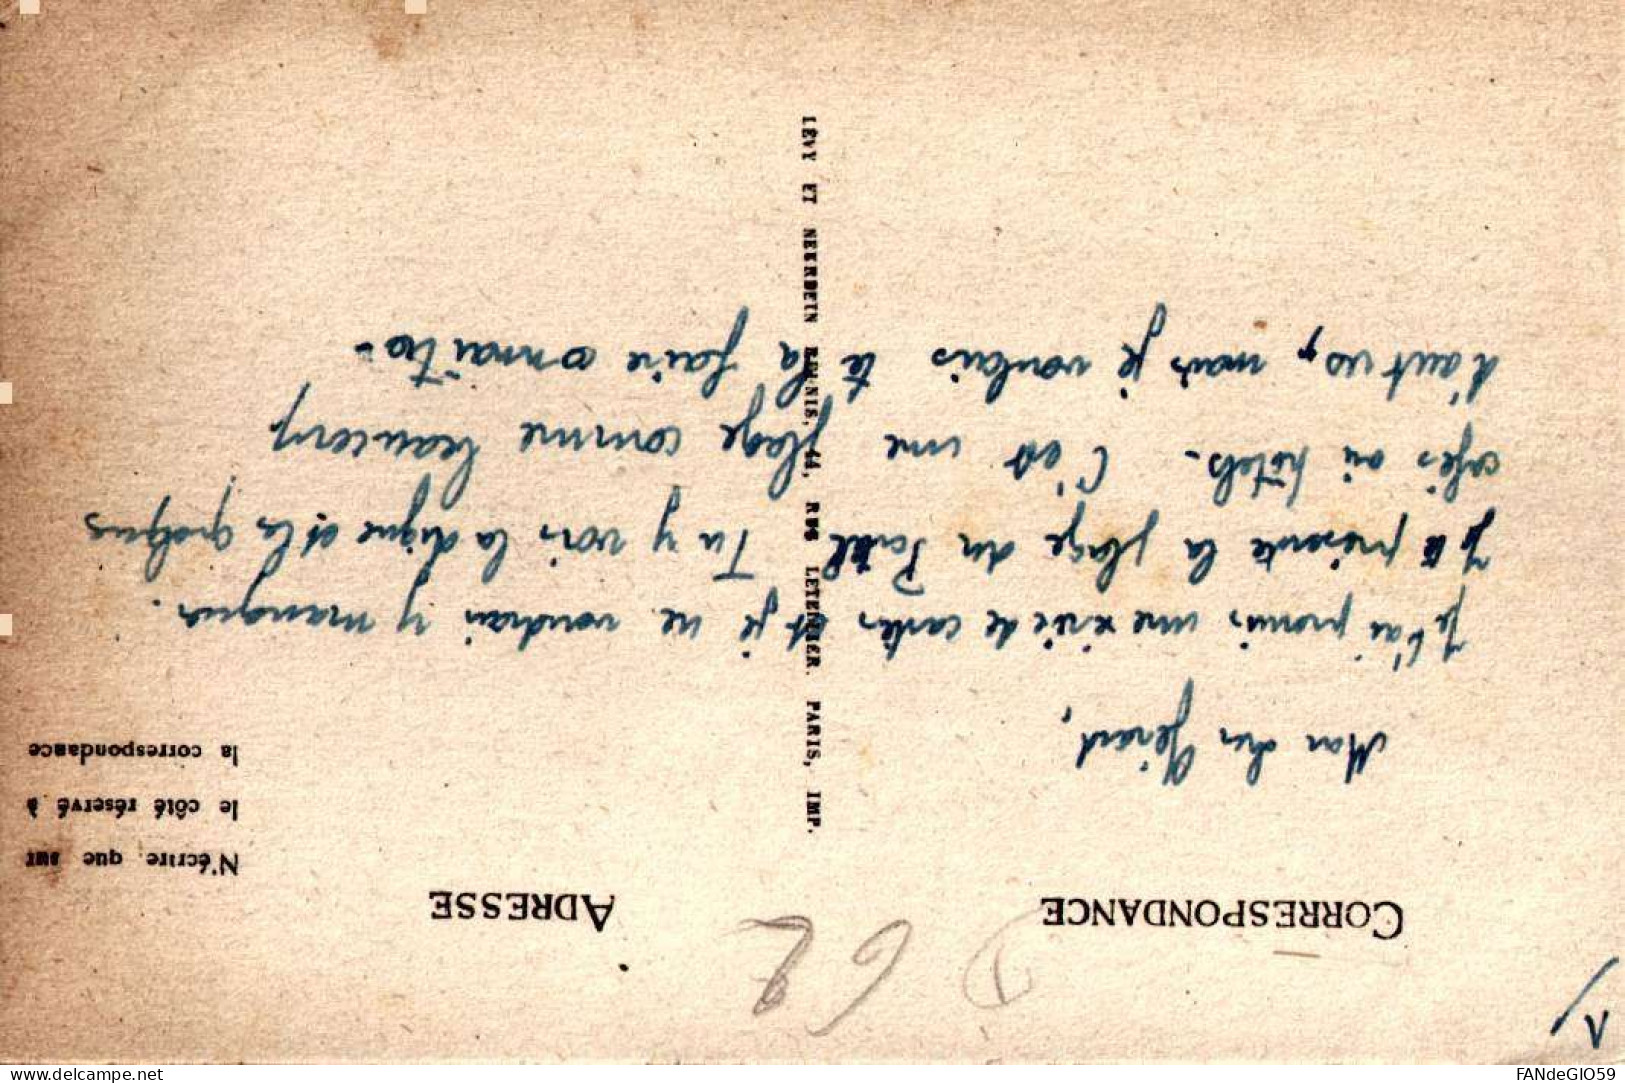 1)
D 62
CORRESPONDANCE
ADRESSE
N'écrire que sur
le côté réservé à
la correspondance
Mon cher Gérard,
Je t'ai promis une série de cartes et je ne voudrai y manquer.
Je te présente la plage du Portel. Tu y vois la digue et les quelques
cafés ou hôtels. C'est une plage comme beaucoup
d'autres, mais je voulais te la faire connaître.
LÉVY ET NEURDEIN RÉUNIS, 44, RUE LETELLIER. PARIS, IMP.
FANdeGIO59